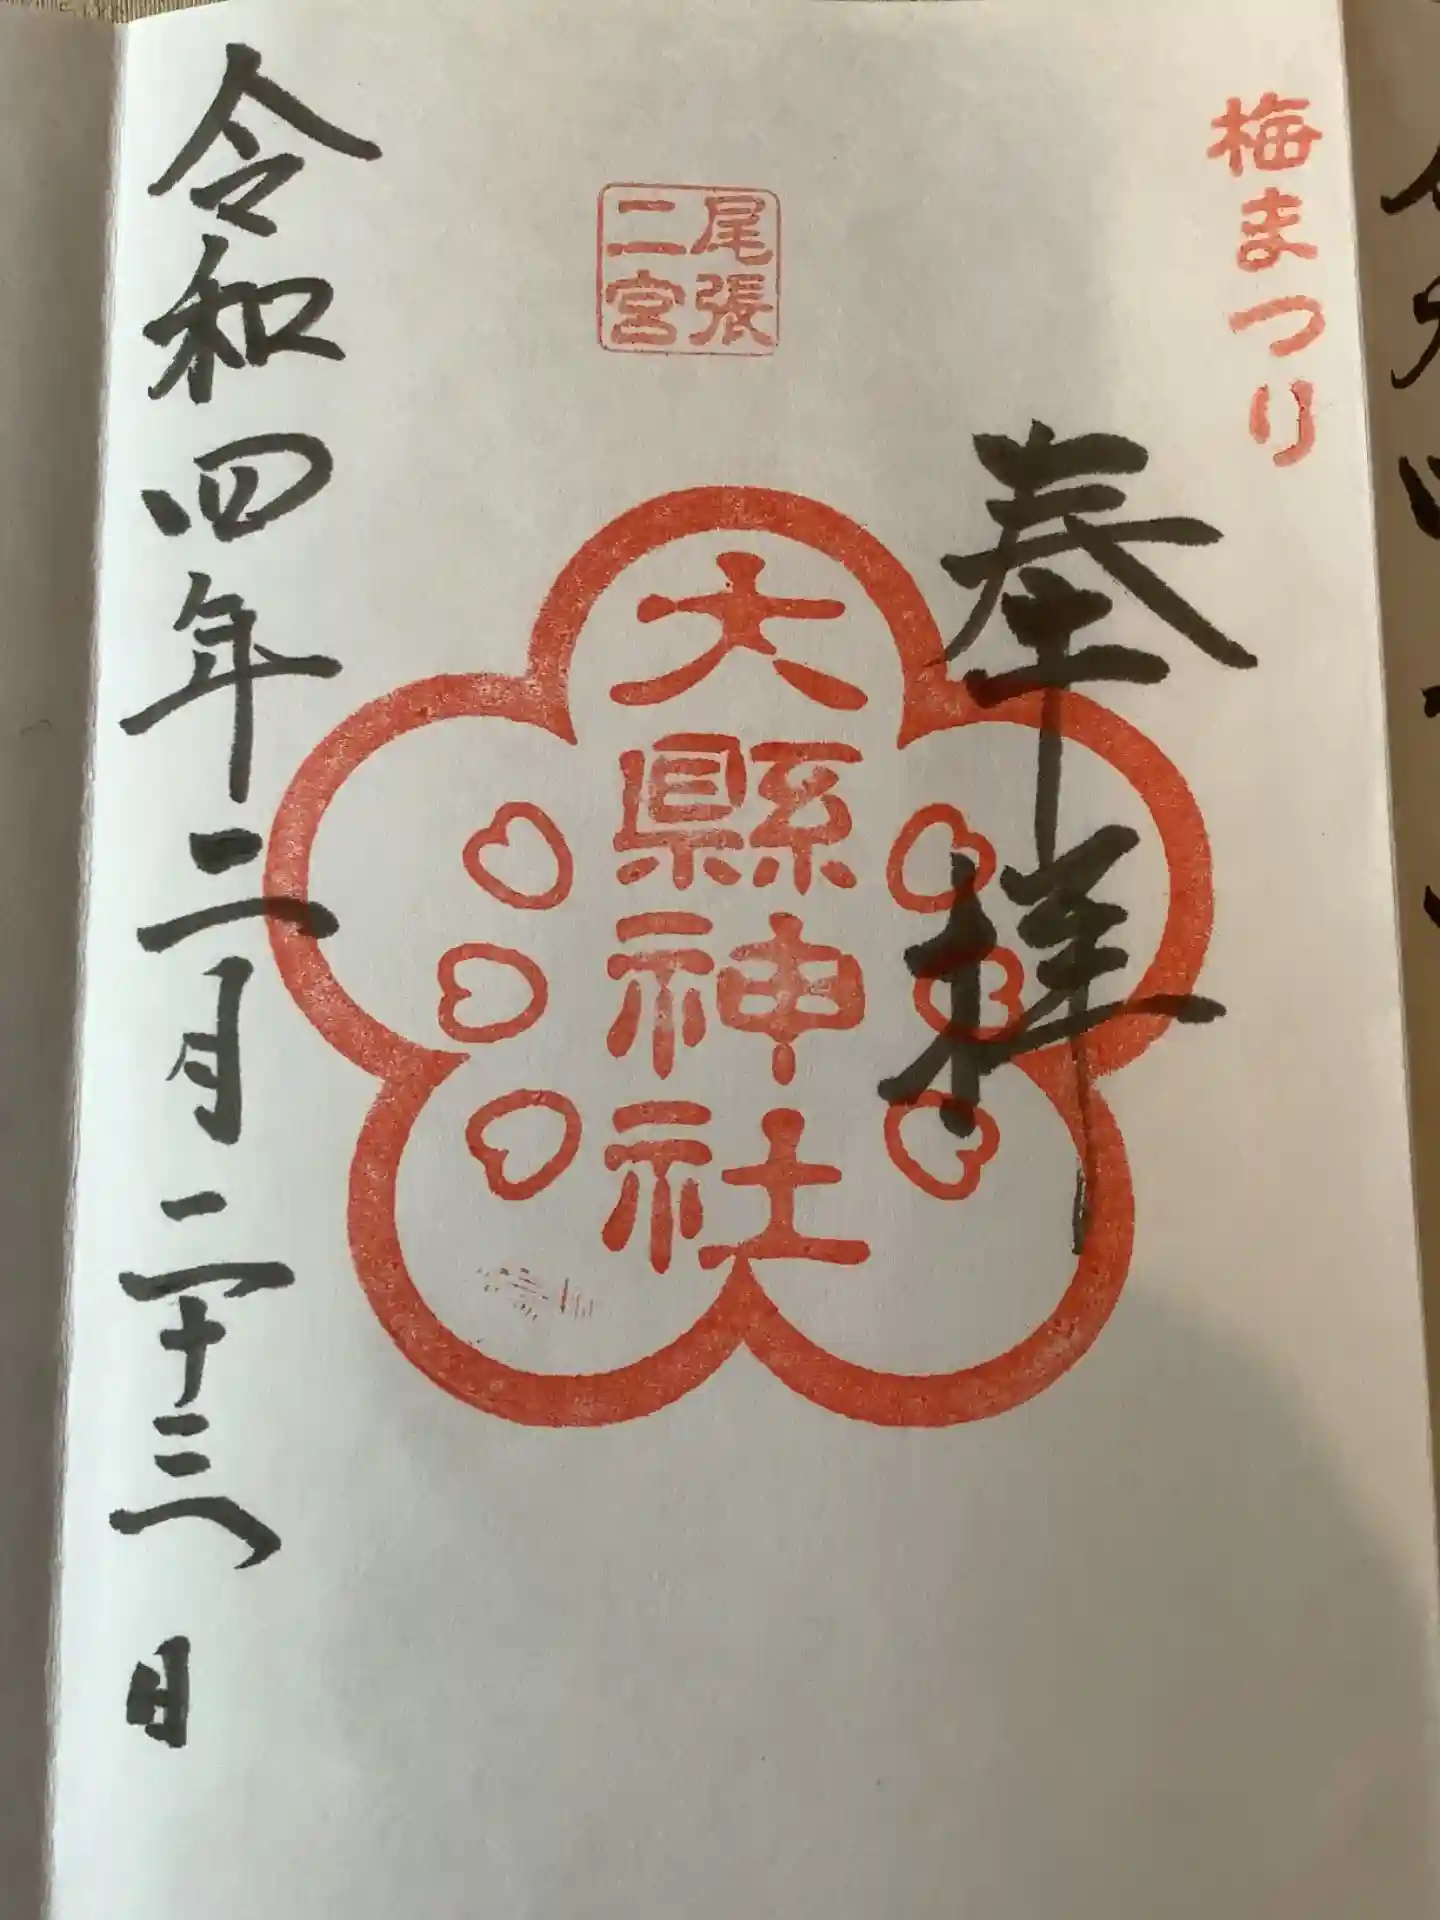 梅まつり
奉拝
尾張
二宮
大縣神社
令和四年二月二十三日